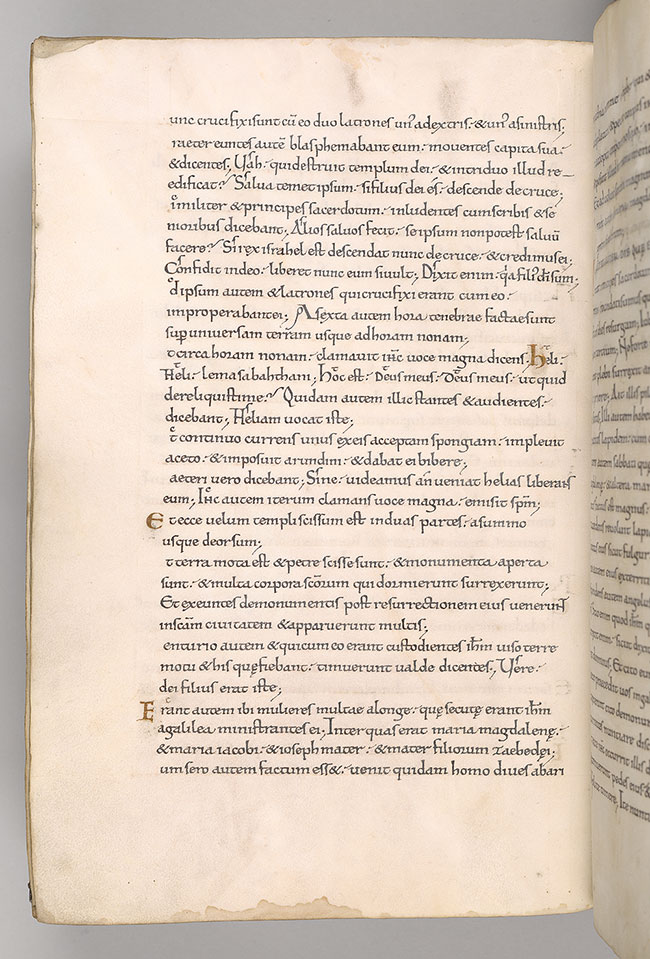 unc crucifixi sunt cū eo duo latrones un' a dextris· & un' a sinistris;
raeter euntes autē blasphemabant eum· moventes capita sua·
& dicentes; Vah· qui destruit templum dei· & in triduo illud re-
edificat· Salva temet ipsum· si filius dei es· descende de cruce;
imiliter & principes sacerdotum· inludentes cum scribis & se
nioribus dicebant; Alios salvos fecit· se ipsum non potest salvū
facere· Si rex israhel est descendat nunc de cruce· & credimus ei;
Confidit in deo· liberet nunc eum si vult; Dixit enim· qa fili' di sum;
d ipsum autem & latrones qui crucifixi erant cum eo·
improperabant ei; A sexta autem hora tenebrae factae sunt
sup universam terram usque ad horam nonam;
t circa horam nonam· clamavit ihc voce magna dicens; heli·
Heli· lema sabahthani; Hoc est· Deus meus· Deus meus· ut quid
dereliquisti me· Quidam autem illic stantes & audientes·
dicebant; Heliam vocat iste;
t continuo currens unus ex eis acceptam spongiam· implevit
aceto· & imposuit arundini· & dabat ei bibere;
aeteri vero dicebant; Sine· videamus an veniat helias liberans
eum; Ihc autem iterum clamans voce magna· emisit spm;
E t ecce velum templi scissum est in duas partes· a summo
usque deorsum;
t terra mota est & petre scisse sunt· & monumenta aperta
sunt· & multa corpora scorum qui dormierunt surrexerunt;
Et exeuntes de monumentis post resurrectionem eius venerunt
in scam civitatem & apparuerunt multis;
enturio autem & qui cum eo erant custodientes ihm viso terre
motu & his quę fiebant· timuerunt valde dicentes; Vere·
dei filius erat iste;
E rant autem ibi mulieres multae a longe· quę secutę erant ihm
a galilea ministrantes ei; Inter quas erat maria magdalenę·
& maria iacobi· & ioseph mater· & mater filiorum zaebedęi;
um sero autem factum ess&· venit quidam homo dives ab ari